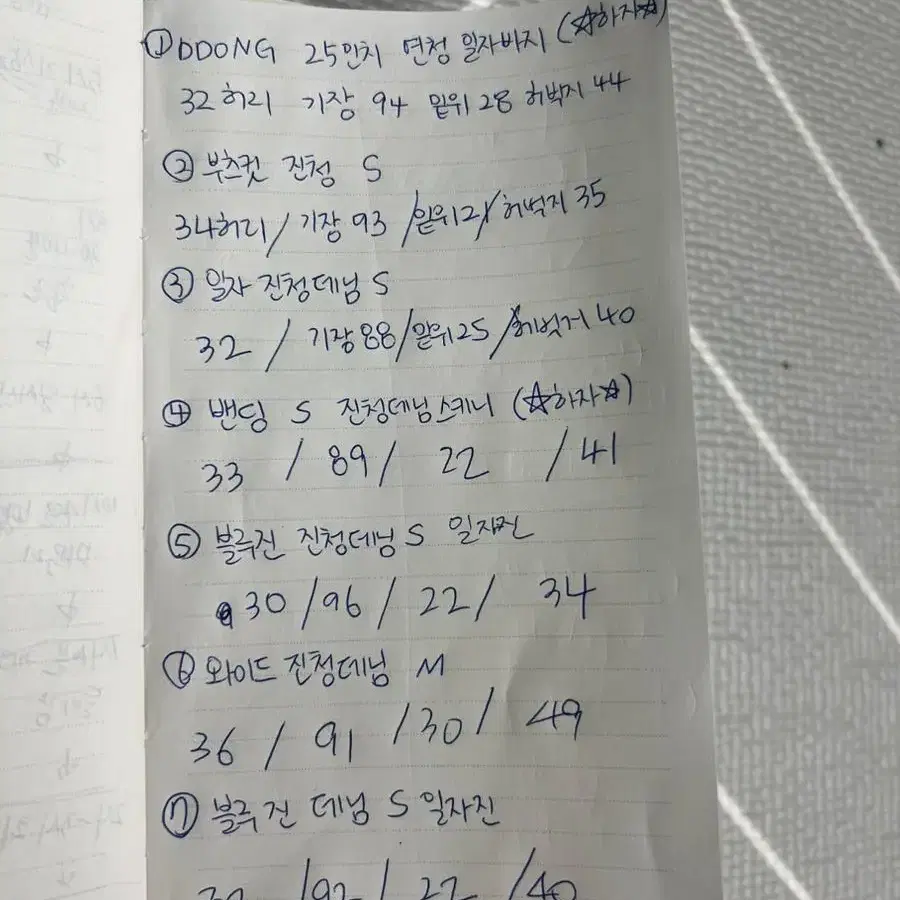 ① DDONG 25인치 연청 일자바지 (☆하자☆)
32허리 기장 94 밑위 28 허벅지 44
② 부츠컷 진청 S
34허리 / 기장 93 / 밑위 21 / 허벅지 35
③ 일자 진청데님 S
32 / 기장 88 / 밑위 25 / 허벅지 40
④ 밴딩 S 진청데님스키니 (☆하자☆)
33 / 89 / 22 / 41
⑤ 블루진 진청데님 S 일자진
30 / 96 / 22 / 34
⑥ 와이드 진청데님 M
36 / 91 / 30 / 49
⑦ 블루진 데님 S 일자진
/ 92 / 22 / 40